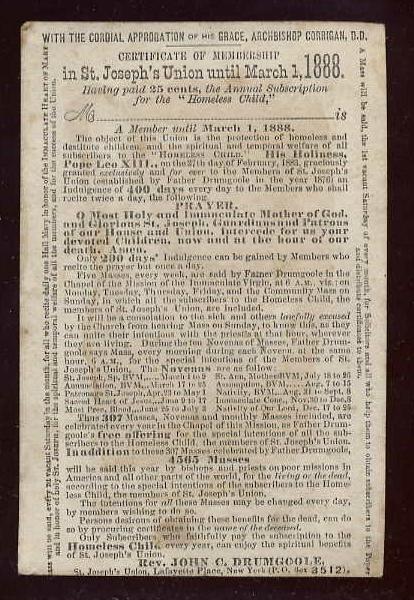 WITH THE CORDIAL APPROBATION OF HIS GRACE, ARCHBISHOP CORRIGAN, D.D.
CERTIFICATE OF MEMBERSHIP
in St. Joseph's Union until March 1, 1888.
Having paid 25 cents, the Annual Subscription
for the "Homeless Child,"
M is
A Member until March 1, 1888.
The object of this Union is the protection of homeless and
destitute children, and the spiritual and temporal welfare of all
subscribers to the "HOMELESS CHILD." His Holiness,
Pope Leo XIII., on the 27th day of February, 1883, graciously
granted exclusively and for ever to the Members of St. Joseph's
Union (established by Father Drumgoole in the year 1876) an
Indulgence of 400 days every day to the Members who shall
recite twice a day, the following
PRAYER.
O Most Holy and Immaculate Mother of God,
and Glorious St. Joseph, Guardians and Patrons
of our House and Union, intercede for us your
devoted Children, now and at the hour of our
death. Amen.
Only 200 days' Indulgence can be gained by Members who
recite the prayer but once a day.
Five Masses, every week, are said by Father Drumgoole in the
Chapel of the Mission of the Immaculate Virgin, at 6 A.M., viz: on
Monday, Tuesday, Thursday, Friday, and the Community Mass on
Sunday, in which all the subscribers to the Homeless Child, the
members of St. Joseph's Union, are included.
It will be a consolation to the sick and others lawfully excused
by the Church from hearing Mass on Sunday, to know this, as they
can unite their intentions with the priests at that hour, wherever
they are living. During the ten Novenas of Masses, Father Drum-
goole says Mass, every morning during each Novena, at the same
hour, 6 A.M., for the special intentions of the Members of St.
Joseph's Union. The Novenas are as follow:
St. Joseph, Sp. BVM, ... March 1 to 9 St. Ann, Mother BVM, July 18 to 26
Annunciation, BVM, .. March 17 to 25 Assumption, BVM, ... Aug. 7 to 15
Patronage St. Joseph, Apr. 23 to May 1 Nativity, BVM, .. Aug. 31 to Sept. 8
Sacred Heart of Jesus, June 9 to 17 Immaculate Conc., Nov. 30 to Dec. 8
Most Prec. Blood, .. June 25 to July 3 Nativity of Our Lord, Dec. 17 to 25
Thus 307 Masses, Novenas and monthly Masses included, are
celebrated every year in the Chapel of this Mission, as Father Drum-
goole's free offering for the special intentions of all the sub-
scribers to the Homeless Child, the members of St. Joseph's Union.
In addition to these 307 Masses celebrated by Father Drumgoole,
4565 Masses
will be said this year by bishops and priests on poor missions in
America and all other parts of the world, for the living or the dead,
according to the special intentions of the subscribers to the Home-
less Child, the members of St. Joseph's Union.
The intentions for all these Masses may be changed every day,
by members wishing to do so.
Persons desirous of obtaining these benefits for the dead, can do
so by procuring certificates in the name of the deceased.
Only Subscribers who faithfully pay the subscription to the
Homeless Child every year, can enjoy the spiritual benefits
of St. Joseph's Union.
Rev. JOHN C. DRUMGOOLE,
St. Joseph's Union, Lafayette Place, New York (P. O. Box 3512).
A Mass will be said, the 1st vacant Saturday of every month, for Solicitors, and all who help them to obtain subscribers to the Paper
and distribute certificates to them.
Mass will be said, every 2d vacant Saturday in the month, for all who recite daily one Hail Mary in honor of the IMMACULATE HEART OF MARY
and in honor of holy St. Joseph, for the spiritual and temporal welfare of all the members, and for the success of the Union.